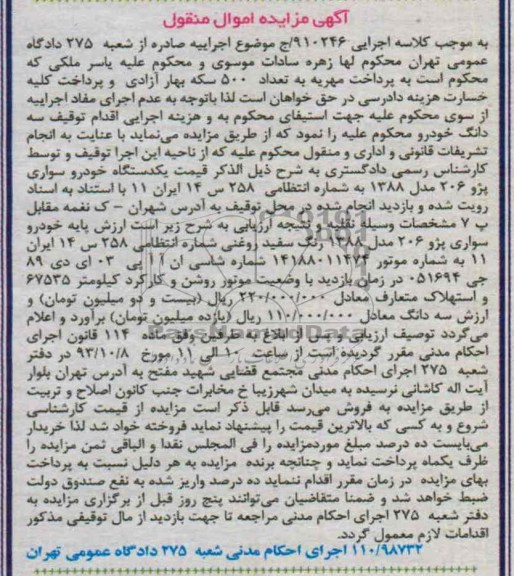 آگهی مزایده اموال منقول
به موجب کلاسه اجرایی ۹۱۰۲۴۶/ج موضوع اجراییه صادره از شعبه ۲۷۵ دادگاه
عمومی تهران محکوم لها زهره سادات موسوی و محکوم علیه یاسر ملکی که
محکوم است به پرداخت مهریه به تعداد ۵۰۰ سکه بهار آزادی و پرداخت کلیه
خسارت هزینه دادرسی در حق خواهان است لذا باتوجه به عدم اجرای مفاد اجراییه
از سوی محکوم علیه جهت استیفای محکوم به و هزینه اجرایی اقدام توقیف سه
دانگ خودرو محکوم علیه را نمود که از طریق مزایده می‌نماید با عنایت به انجام
تشریفات قانونی و اداری و منقول محکوم علیه که از ناحیه این اجرا توقیف و توسط
کارشناس رسمی دادگستری به شرح ذیل الذکر قیمت یکدستگاه خودرو سواری
پژو ۲۰۶ مدل ۱۳۸۸ به شماره انتظامی ۲۵۸ س ۱۴ ایران ۱۱ با استناد به اسناد
رویت شده و بازدید انجام شده در محل توقیف به آدرس شهران - ک نغمه مقابل
پ ۷ مشخصات وسیله نقلیه و نتیجه ارزیابی به شرح زیر است ارزش پایه خودرو
سواری پژو ۲۰۶ مدل ۱۳۸۸ رنگ سفید روغنی شماره انتظامی ۲۵۸ س ۱۴ ایران
۱۱ به شماره موتور ۱۴۱۸۸۰۱۱۴۷۴ شماره شاسی ان ۱۱ پی ۰۳ ای دی ۸۹
جی ۰۵۱۶۹۴ در زمان بازدید با وضعیت موتور روشن و کارکرد کیلومتر ۶۷۵۳۵
و استهلاک متعارف معادل ۲۲۰/۰۰۰/۰۰۰ ریال (بیست و دو میلیون تومان) و
ارزش سه دانگ معادل ۱۱۰/۰۰۰/۰۰۰ ریال (یازده میلیون تومان) برآورد و اعلام
می‌گردد توصیف ارزیابی و پس از ابلاغ به طرفین وفق ماده ۱۱۴ قانون اجرای
احکام مدنی مقرر گردیده است از ساعت ۱۰ الی ۱۱ مورخ ۹۳/۱۰/۸ در دفتر
شعبه ۲۷۵ اجرای احکام مدنی مجتمع قضایی شهید مفتح به آدرس تهران بلوار
آیت اله کاشانی نرسیده به میدان شهرزیبا خ مخابرات جنب کانون اصلاح و تربیت
از طریق مزایده به فروش می‌رسد قابل ذکر است مزایده از قیمت کارشناسی
شروع و به کسی که بالاترین قیمت را پیشنهاد نماید فروخته خواد شد لذا خریدار
می‌بایست ده درصد مبلغ موردمزایده را فی المجلس نقدا و الباقی ثمن مزایده را
ظرف یکماه پرداخت نماید و چنانچه برنده مزایده به هر دلیل نسبت به پرداخت
بهای مزایده در زمان مقرر اقدام ننماید ده درصد واریز شده به نفع صندوق دولت
ضبط خواهد شد و ضمنا متقاضیان می‌توانند پنج روز قبل از برگزاری مزایده به
دفتر شعبه ۲۷۵ اجرای احکام مدنی مراجعه تا جهت بازدید از مال توقیفی مذکور
اقدامات لازم معمول گردد.
۱۱۰/۹۸۷۳۲ اجرای احکام مدنی شعبه ۲۷۵ دادگاه عمومی تهران